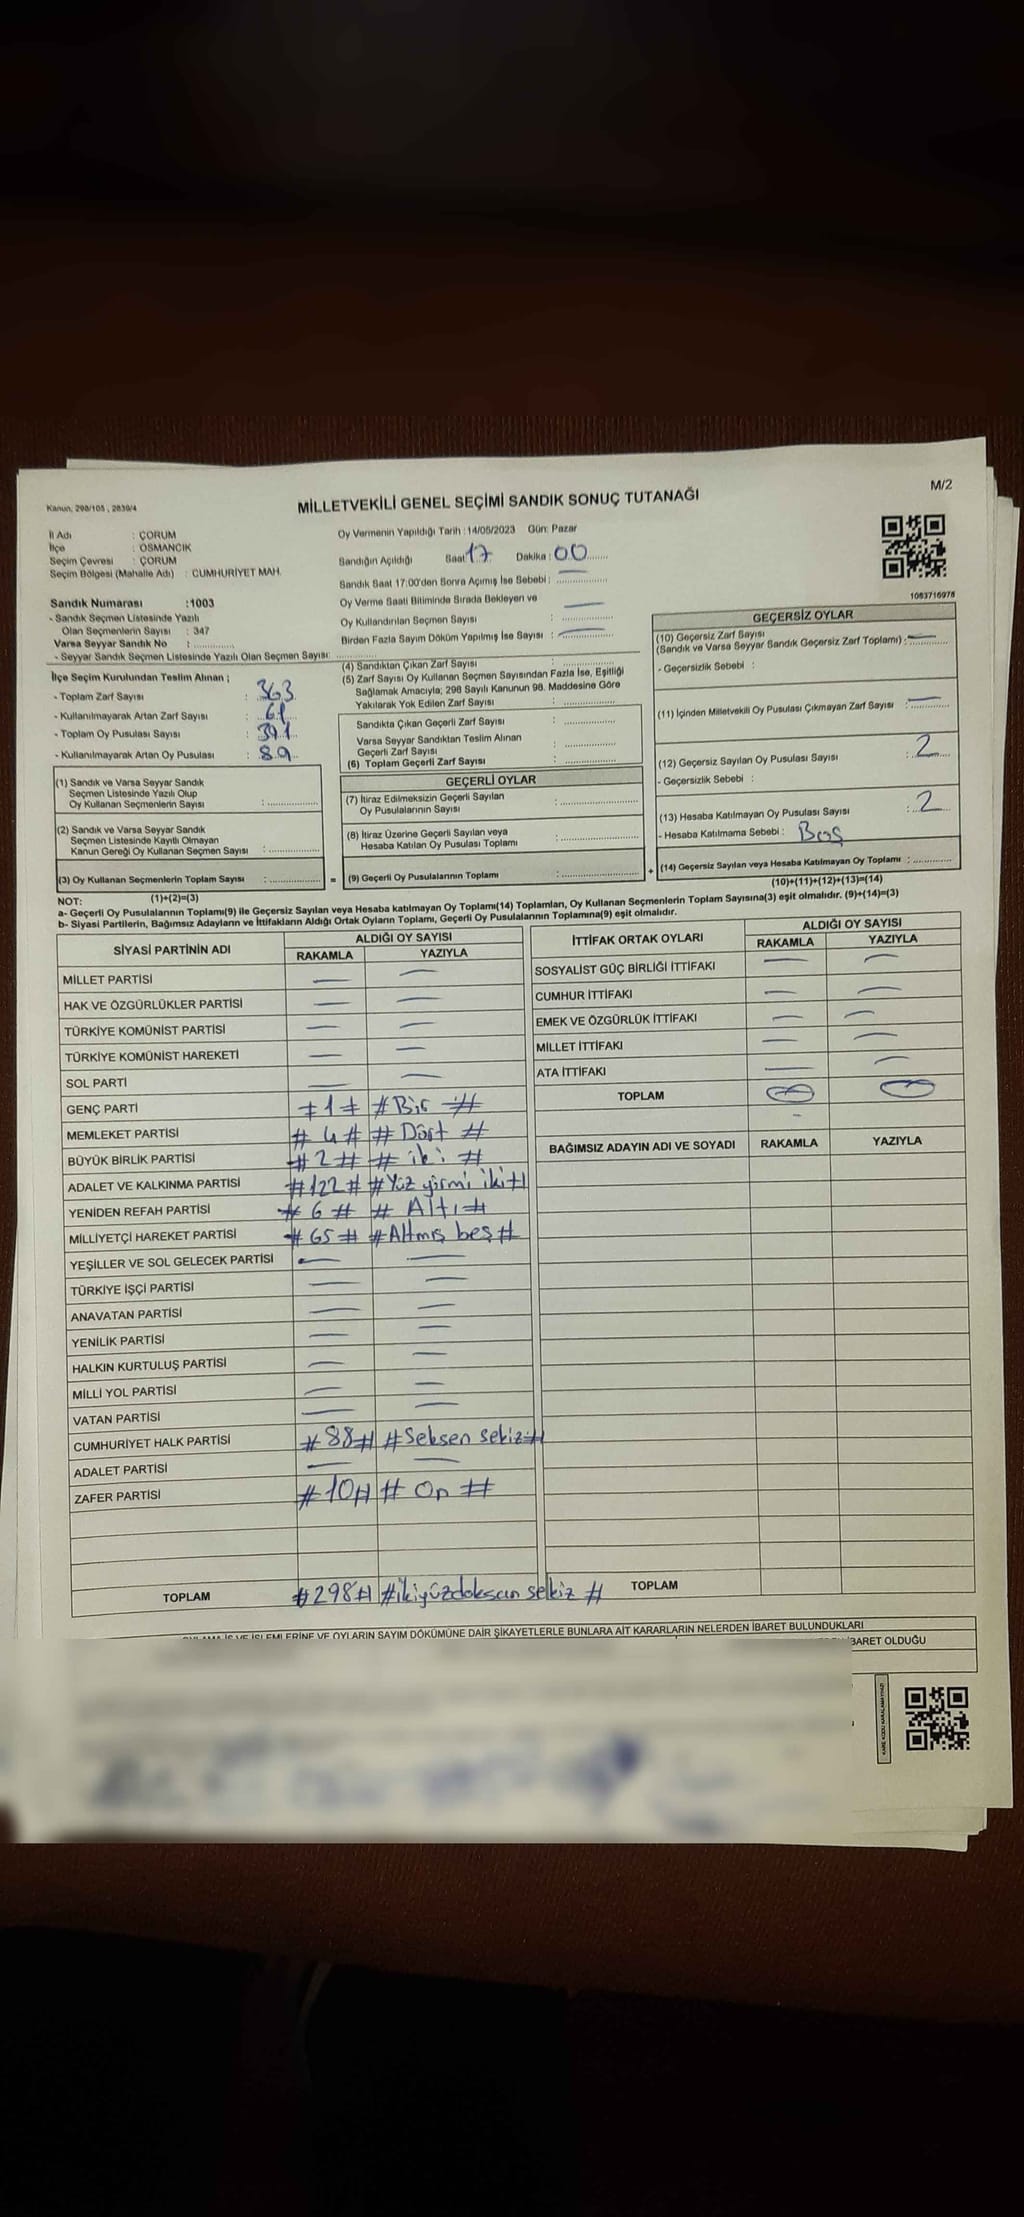 M/2
Kanun, 298/105 , 2839/4
MİLLETVEKİLİ GENEL SEÇİMİ SANDIK SONUÇ TUTANAĞI
İl Adı : ÇORUM
İlçe : OSMANCIK
Seçim Çevresi : ÇORUM
Seçim Bölgesi (Mahalle Adı) : CUMHURİYET MAH.
Oy Vermenin Yapıldığı Tarih : 14/05/2023 Gün: Pazar
Sandığın Açıldığı Saat 17 Dakika : 00
Sandık Saat 17:00'den Sonra Açımış İse Sebebi :
Oy Verme Saati Bitiminde Sırada Bekleyen ve
Oy Kullandırılan Seçmen Sayısı :
Birden Fazla Sayım Döküm Yapılmış İse Sayısı :
1083716978
Sandık Numarası :1003
- Sandık Seçmen Listesinde Yazılı
Olan Seçmenlerin Sayısı : 347
Varsa Seyyar Sandık No :
- Seyyar Sandık Seçmen Listesinde Yazılı Olan Seçmen Sayısı:
İlçe Seçim Kurulundan Teslim Alınan ;
- Toplam Zarf Sayısı : 363
- Kullanılmayarak Artan Zarf Sayısı : 61
- Toplam Oy Pusulası Sayısı : 391
- Kullanılmayarak Artan Oy Pusulası : 89
(1) Sandık ve Varsa Seyyar Sandık
Seçmen Listesinde Yazılı Olup
Oy Kullanan Seçmenlerin Sayısı :
(2) Sandık ve Varsa Seyyar Sandık
Seçmen Listesinde Kayıtlı Olmayan
Kanun Gereği Oy Kullanan Seçmen Sayısı :
(3) Oy Kullanan Seçmenlerin Toplam Sayısı : =
(1)+(2)=(3)
(4) Sandıktan Çıkan Zarf Sayısı :
(5) Zarf Sayısı Oy Kullanan Seçmen Sayısından Fazla İse, Eşitliği
Sağlamak Amacıyla; 298 Sayılı Kanunun 98. Maddesine Göre
Yakılarak Yok Edilen Zarf Sayısı :
Sandıkta Çıkan Geçerli Zarf Sayısı :
Varsa Seyyar Sandıktan Teslim Alınan
Geçerli Zarf Sayısı :
(6) Toplam Geçerli Zarf Sayısı :
GEÇERLİ OYLAR
(7) İtiraz Edilmeksizin Geçerli Sayılan
Oy Pusulalarının Sayısı :
(8) İtiraz Üzerine Geçerli Sayılan veya
Hesaba Katılan Oy Pusulası Toplamı :
(9) Geçerli Oy Pusulalarının Toplamı : +
GEÇERSİZ OYLAR
(10) Geçersiz Zarf Sayısı
(Sandık ve Varsa Seyyar Sandık Geçersiz Zarf Toplamı) :
- Geçersizlik Sebebi :
(11) İçinden Milletvekili Oy Pusulası Çıkmayan Zarf Sayısı :
(12) Geçersiz Sayılan Oy Pusulası Sayısı : 2
- Geçersizlik Sebebi :
(13) Hesaba Katılmayan Oy Pusulası Sayısı : 2
- Hesaba Katılmama Sebebi : Boş
(14) Geçersiz Sayılan veya Hesaba Katılmayan Oy Toplamı :
(10)+(11)+(12)+(13)=(14)
NOT:
a- Geçerli Oy Pusulalarının Toplamı(9) ile Geçersiz Sayılan veya Hesaba katılmayan Oy Toplamı(14) Toplamları, Oy Kullanan Seçmenlerin Toplam Sayısına(3) eşit olmalıdır. (9)+(14)=(3)
b- Siyasi Partilerin, Bağımsız Adayların ve İttifakların Aldığı Ortak Oyların Toplamı, Geçerli Oy Pusulalarının Toplamına(9) eşit olmalıdır.
SİYASİ PARTİNİN ADI ALDIĞI OY SAYISI
RAKAMLA YAZIYLA
MİLLET PARTİSİ — —
HAK VE ÖZGÜRLÜKLER PARTİSİ — —
TÜRKİYE KOMÜNİST PARTİSİ — —
TÜRKİYE KOMÜNİST HAREKETİ — —
SOL PARTİ — —
GENÇ PARTİ #1# #Bir#
MEMLEKET PARTİSİ #4# #Dört#
BÜYÜK BİRLİK PARTİSİ #2# #iki#
ADALET VE KALKINMA PARTİSİ #122# #Yüz yirmi iki#
YENİDEN REFAH PARTİSİ #6# #Altı#
MİLLİYETÇİ HAREKET PARTİSİ #65# #Altmış beş#
YEŞİLLER VE SOL GELECEK PARTİSİ — —
TÜRKİYE İŞÇİ PARTİSİ — —
ANAVATAN PARTİSİ — —
YENİLİK PARTİSİ — —
HALKIN KURTULUŞ PARTİSİ — —
MİLLİ YOL PARTİSİ — —
VATAN PARTİSİ — —
CUMHURİYET HALK PARTİSİ #88# #Seksen sekiz#
ADALET PARTİSİ — —
ZAFER PARTİSİ #10# #On#
TOPLAM #298# #ikiyüzdoksan sekiz#
İTTİFAK ORTAK OYLARI ALDIĞI OY SAYISI
RAKAMLA YAZIYLA
SOSYALİST GÜÇ BİRLİĞİ İTTİFAKI — —
CUMHUR İTTİFAKI — —
EMEK VE ÖZGÜRLÜK İTTİFAKI — —
MİLLET İTTİFAKI — —
ATA İTTİFAKI — —
TOPLAM
BAĞIMSIZ ADAYIN ADI VE SOYADI RAKAMLA YAZIYLA
TOPLAM
OYLARIN SAYIM DÖKÜMÜNE DAİR ŞİKAYETLERLE BUNLARA AİT KARARLARIN NELERDEN İBARET BULUNDUKLARI
İBARET OLDUĞU